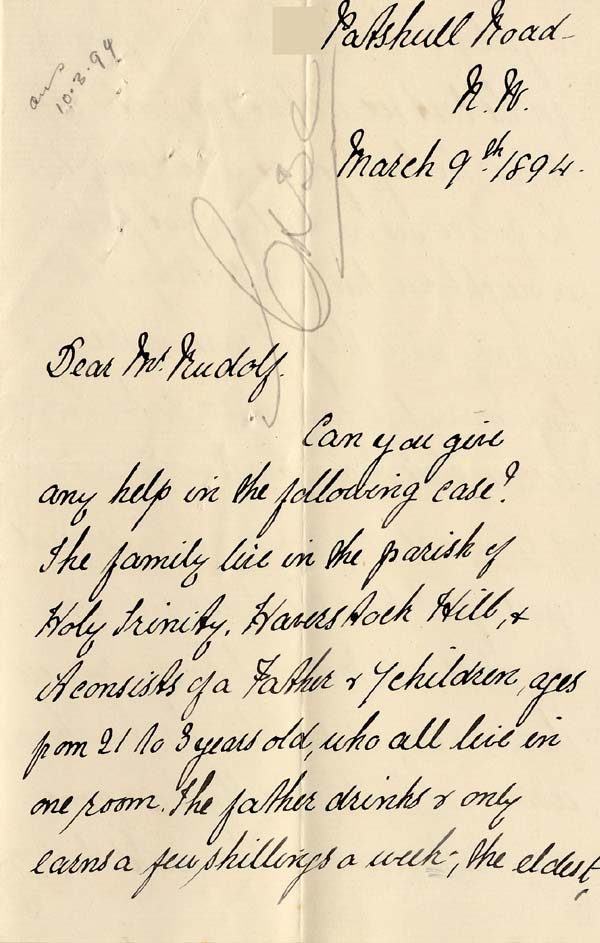 Patshull Road
N.W.
March 9th 1894.
ans
10.3.94
Case
Dear Mr. Rudolf.
Can you give
any help in the following case?
The family live in the parish of
Holy Trinity, Haverstock Hill, &
it consists of a Father & 7 children, ages
from 21 to 3 years old, who all live in
one room. The father drinks & only
earns a few shillings a week-, the eldest,